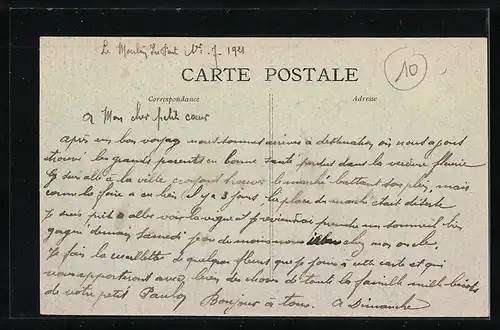 Le Moulin N° 7 1921
10
CARTE POSTALE
Correspondance
Adresse
a Mon cher petit cœur
Après un bon voyage nous sommes arrivés a destination où nous avons
trouvé les grands parents en bonne santé perdus dans la verdure fleurie
suis allé à la ville croyant trouver le marché battant son plein, mais
comme la foire a eu lieu il y a 3 jours, la place du marché était déserte
Je suis prêt a aller voir la vigne et je reviendrai prendre un sommeil bien
gagné demain samedi nous chez mon oncle.
Je fais la cueillette de quelques fleurs que je joins à cette carte et qui
vous apporteront avec bien de choses de toute la famille mille
de votre petit Paulo Bonjour à tous. A Dimanche